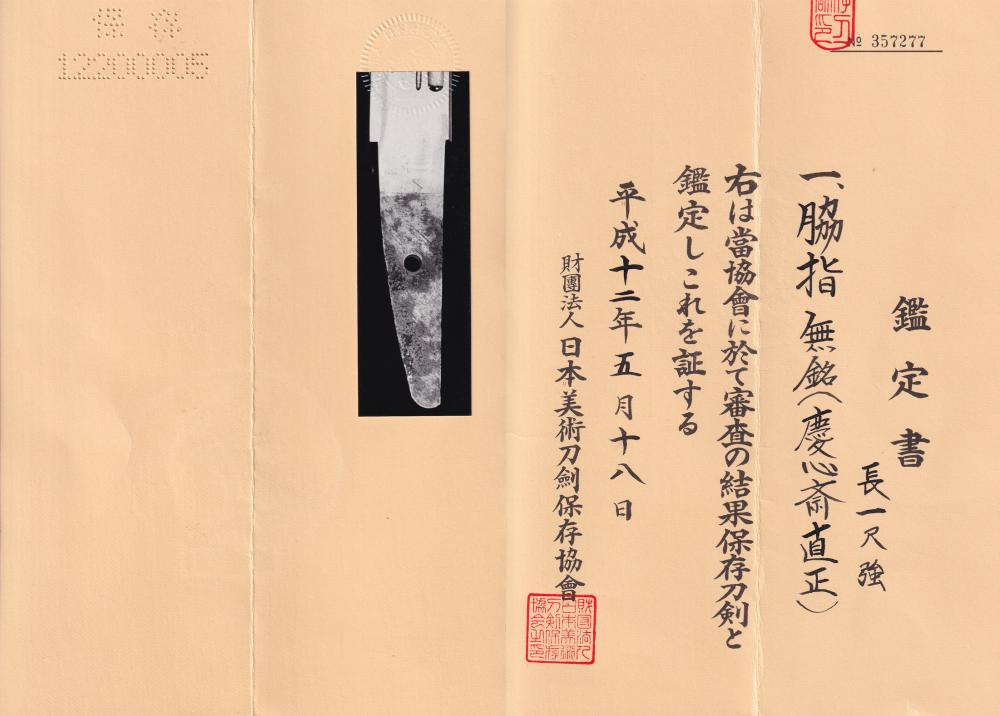 № 357277
鑑定書
長一尺強
一、脇指 無銘(慶心斎直正)
右は當協會に於て審査の結果保存刀剣と
鑑定しこれを証する
平成十二年五月十八日
財團法人日本美術刀劍保存協會
財団法人
日本美術
刀剣保存
協会之印
保存
12200005